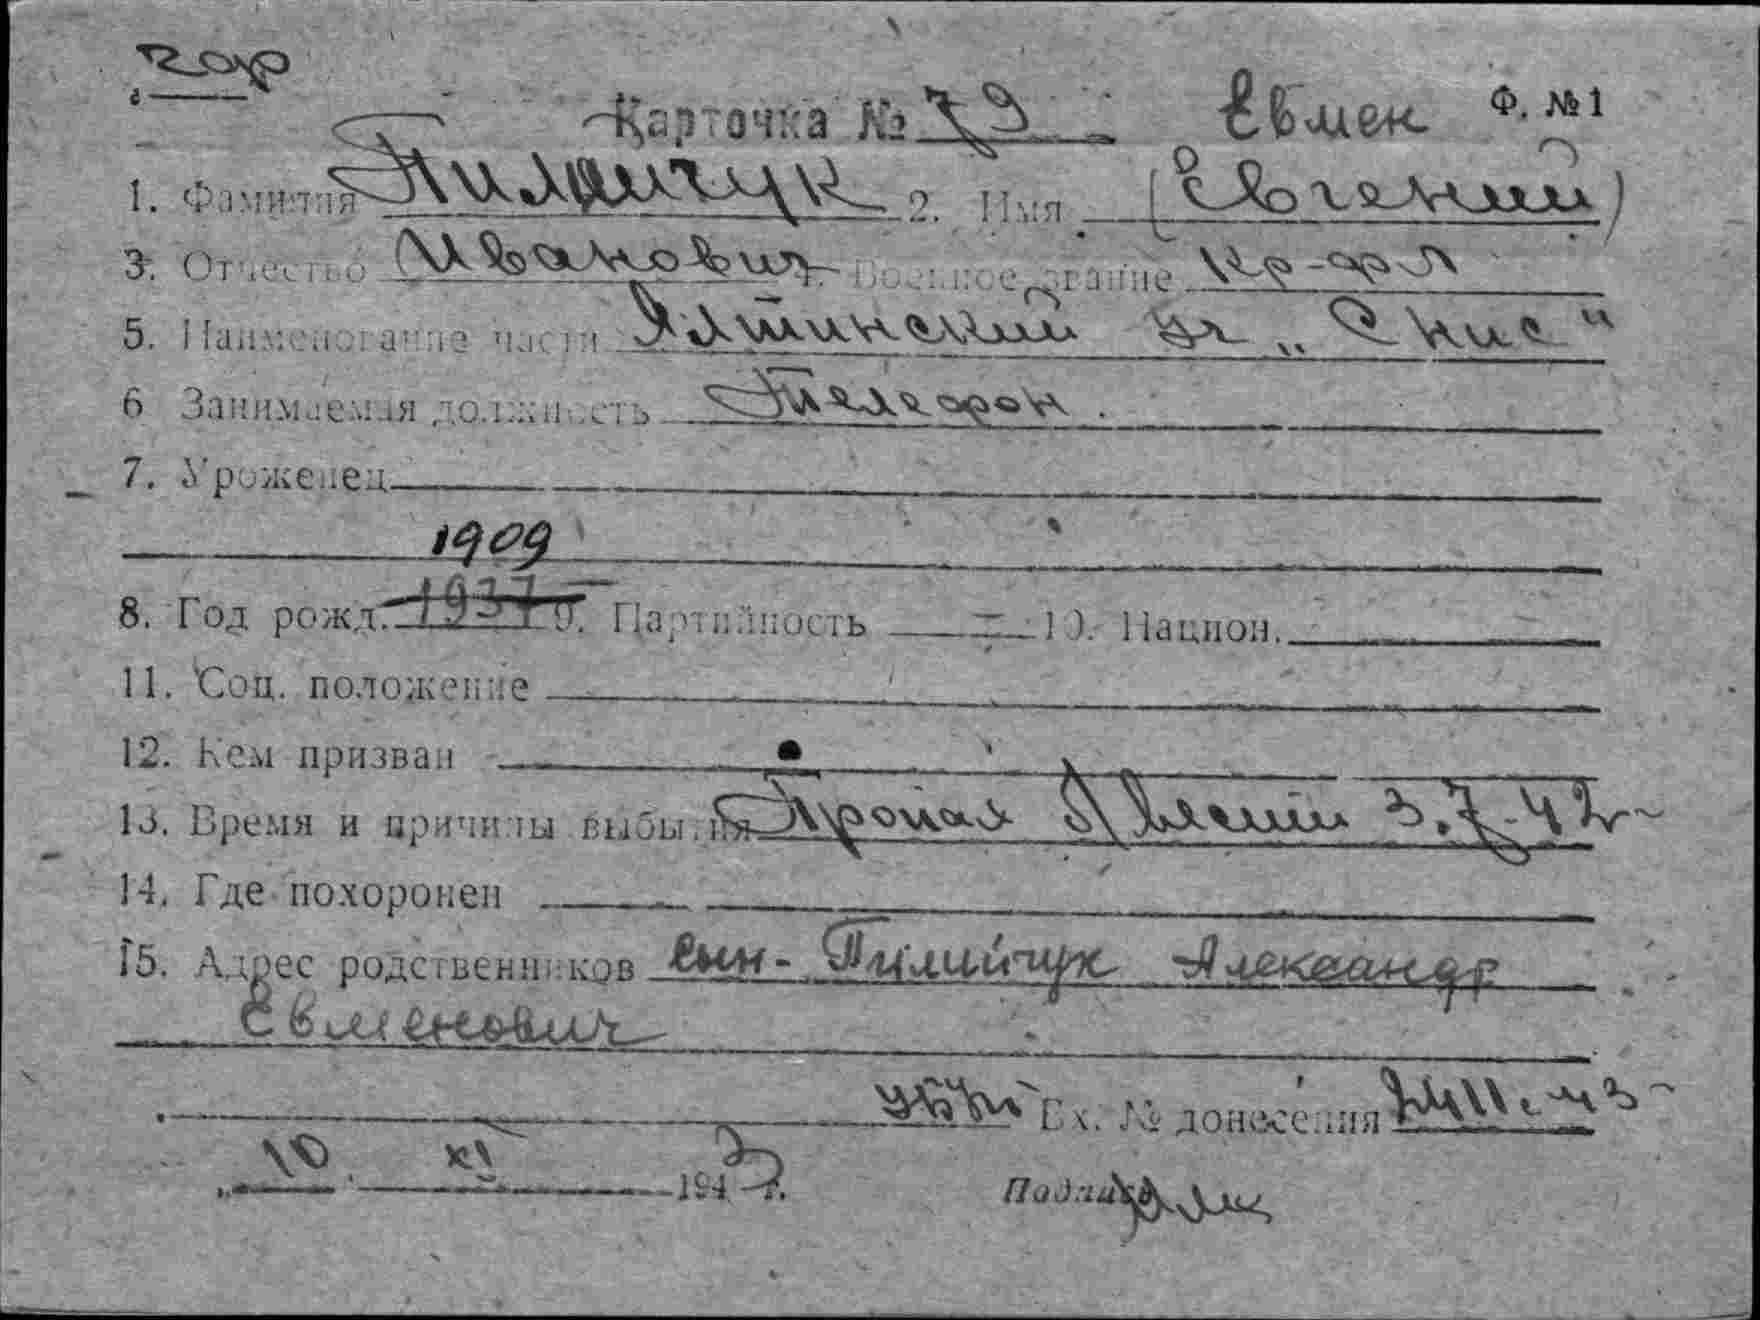 Карточка № 79 Евмен Ф. №1
1. Фамилия Пилипчук 2. Имя (Евгений)
3. Отчество Иванович Военное звание кр-арм
5. Наименование части Ялтинский
6 Занимаемая должность Телефон.
7. Уроженец
1909
8. Год рожд. 1937 9. Партийность 10. Национ.
11. Соц. положение
12. Кем призван
13. Время и причины выбытия Пропал 3.7.42
14. Где похоронен
15. Адрес родственников сын - Пилипчук Александр
Евменович
Вх. № донесения
10 XI 1943 г.